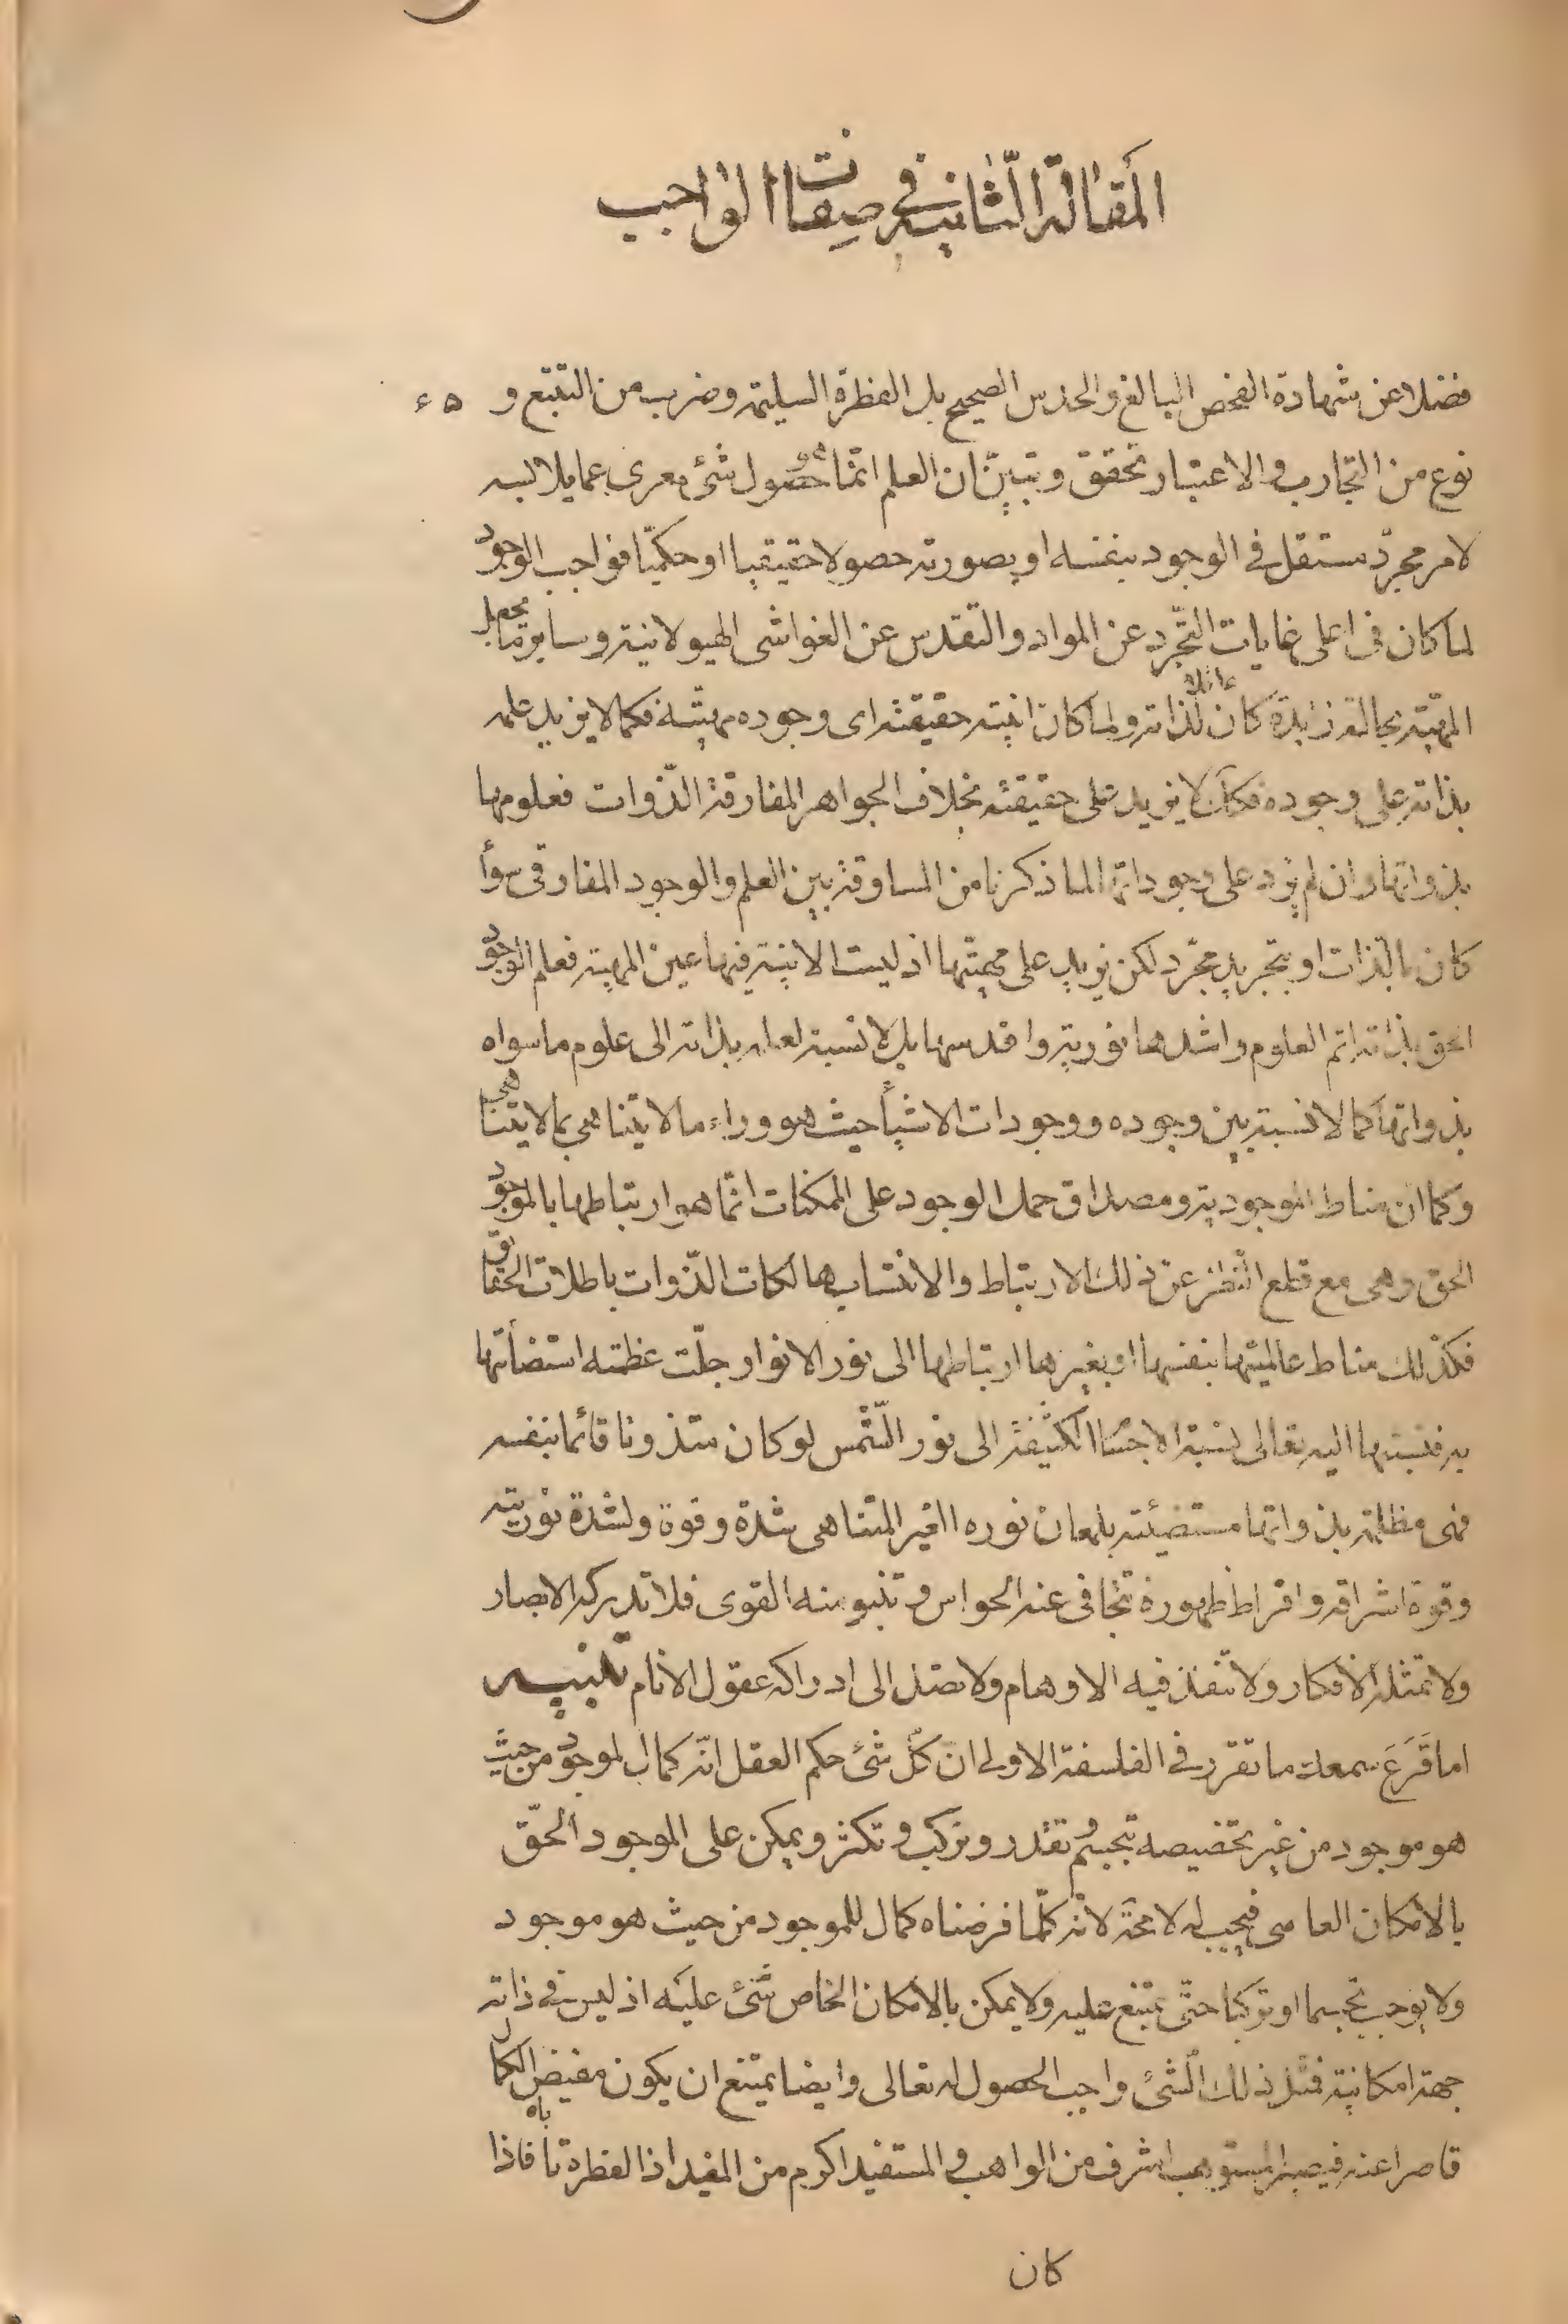 المقالة الثانية في صفات الواجب
فضلا عن شهادة الفحص البالغ والحدس الصحيح بل الفطرة السليمة وضرب من التتبع و ۶۵
نوع من التجارب والاعتبار تحقق وتبين ان العلم انما هو حصول شئ معرى عما يلابسه
لامر مجرد مستقل في الوجود بنفسه او بصورته حصولا حقيقيا او حكميا فواجب الوجود
لما كان في اعلى غايات التجرد عن المواد والتقدس عن الغواشى الهيولانية وساير ما يجعل
المهية بحالة زايدة كان عاقلا لذاته ولما كان انيته حقيقته اى وجوده مهيته فكما لا يزيد علمه
بذاته على وجوده فكك لا يزيد على حقيقته بخلاف الجواهر المفارقة الذوات فعلومها
بذواتها وان لم يزد على وجوداتها لما ذكرنا من المساوقة بين العلم والوجود المفارقى سوأ
كان بالذات او بتجريد مجرد لكن يزيد على مهيتها اذ ليست الانية فيها عين المهية فعلم الوجود
الحق بذاته اتم العلوم واشدها نورية واقدسها بل لا نسبة لعلمه بذاته الى علوم ما سواه
بذواتها كما لا نسبة بين وجوده ووجودات الاشيأ حيث هو وراء ما لا يتناهى بما لا يتناهى
وكما ان مناط الموجودية ومصداق حمل الوجود على الممكنات انما هو ارتباطها بالموجود
الحق وهى مع قطع النظر عن ذلك الارتباط والانتساب هالكات الذوات باطلات الحقائق
فكذلك مناط عالميتها بنفسها او بغيرها ارتباطها الى نور الانوار جلت عظمته استضأتها
به فنسبتها اليه تعالى نسبة الاجسا الكثيفة الى نور الشمس لو كان متذوتا قائما بنفسه
فهى مظلمة بذواتها مستضيئة بلمعان نوره الغير المتناهى شدة وقوة ولشدة نوريته
وقوة اشراقه وافراط ظهوره تتجافى عنه الحواس وتنبو منه القوى فلا تدركه الابصار
ولا تمثله الافكار ولا تنفذ فيه الاوهام ولا تصل الى ادراكه عقول الانام تنبيه
اما قَرَعَ سمعك ما تقرر في الفلسفة الاولى ان كل شئ حكم العقل انه كمال لموجود من حيث
هو موجود من غير تخصيصه بتجسم وتقدر وتركب وتكثر ويمكن على الموجود الحق
بالامكان العامى فيجب له لا محة لانه كلما فرضناه كمال للموجود من حيث هو موجود
ولا يوجب تجسما او تركبا حتى يمتنع عليه ولا يمكن بالامكان الخاص شئ عليه اذ ليس في ذاته
جهة امكانية فمثل ذلك الشئ واجب الحصول له تعالى وايضا يمتنع ان يكون مفيض الكمال
قاصرا عنه فيصير المستوهب اشرف من الواهب والمستفيد اكرم من المفيد اذ الفطرة تأباه فاذا
كان